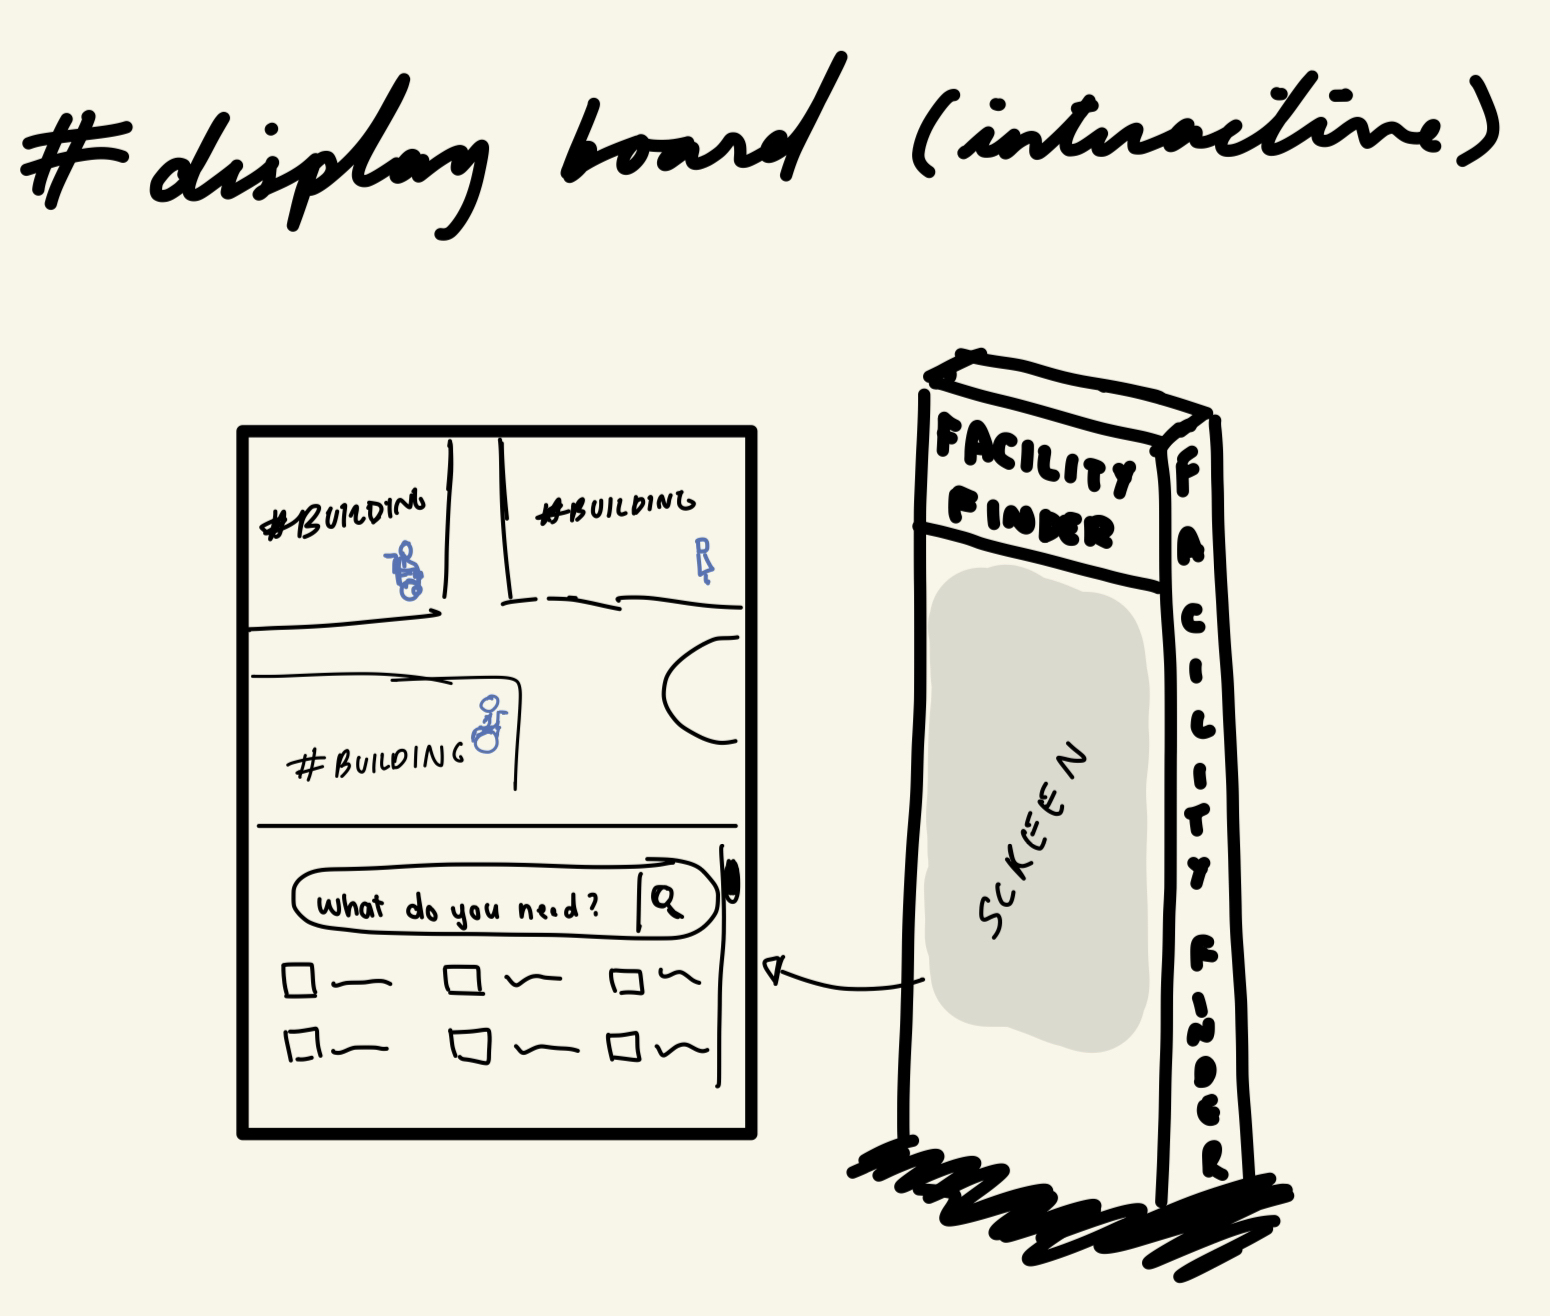 #display board (interactive)
#BUILDING
#BUILDING
#BUILDING
what do you need?
FACILITY
FINDER
SCREEN
FACILITY FINDER